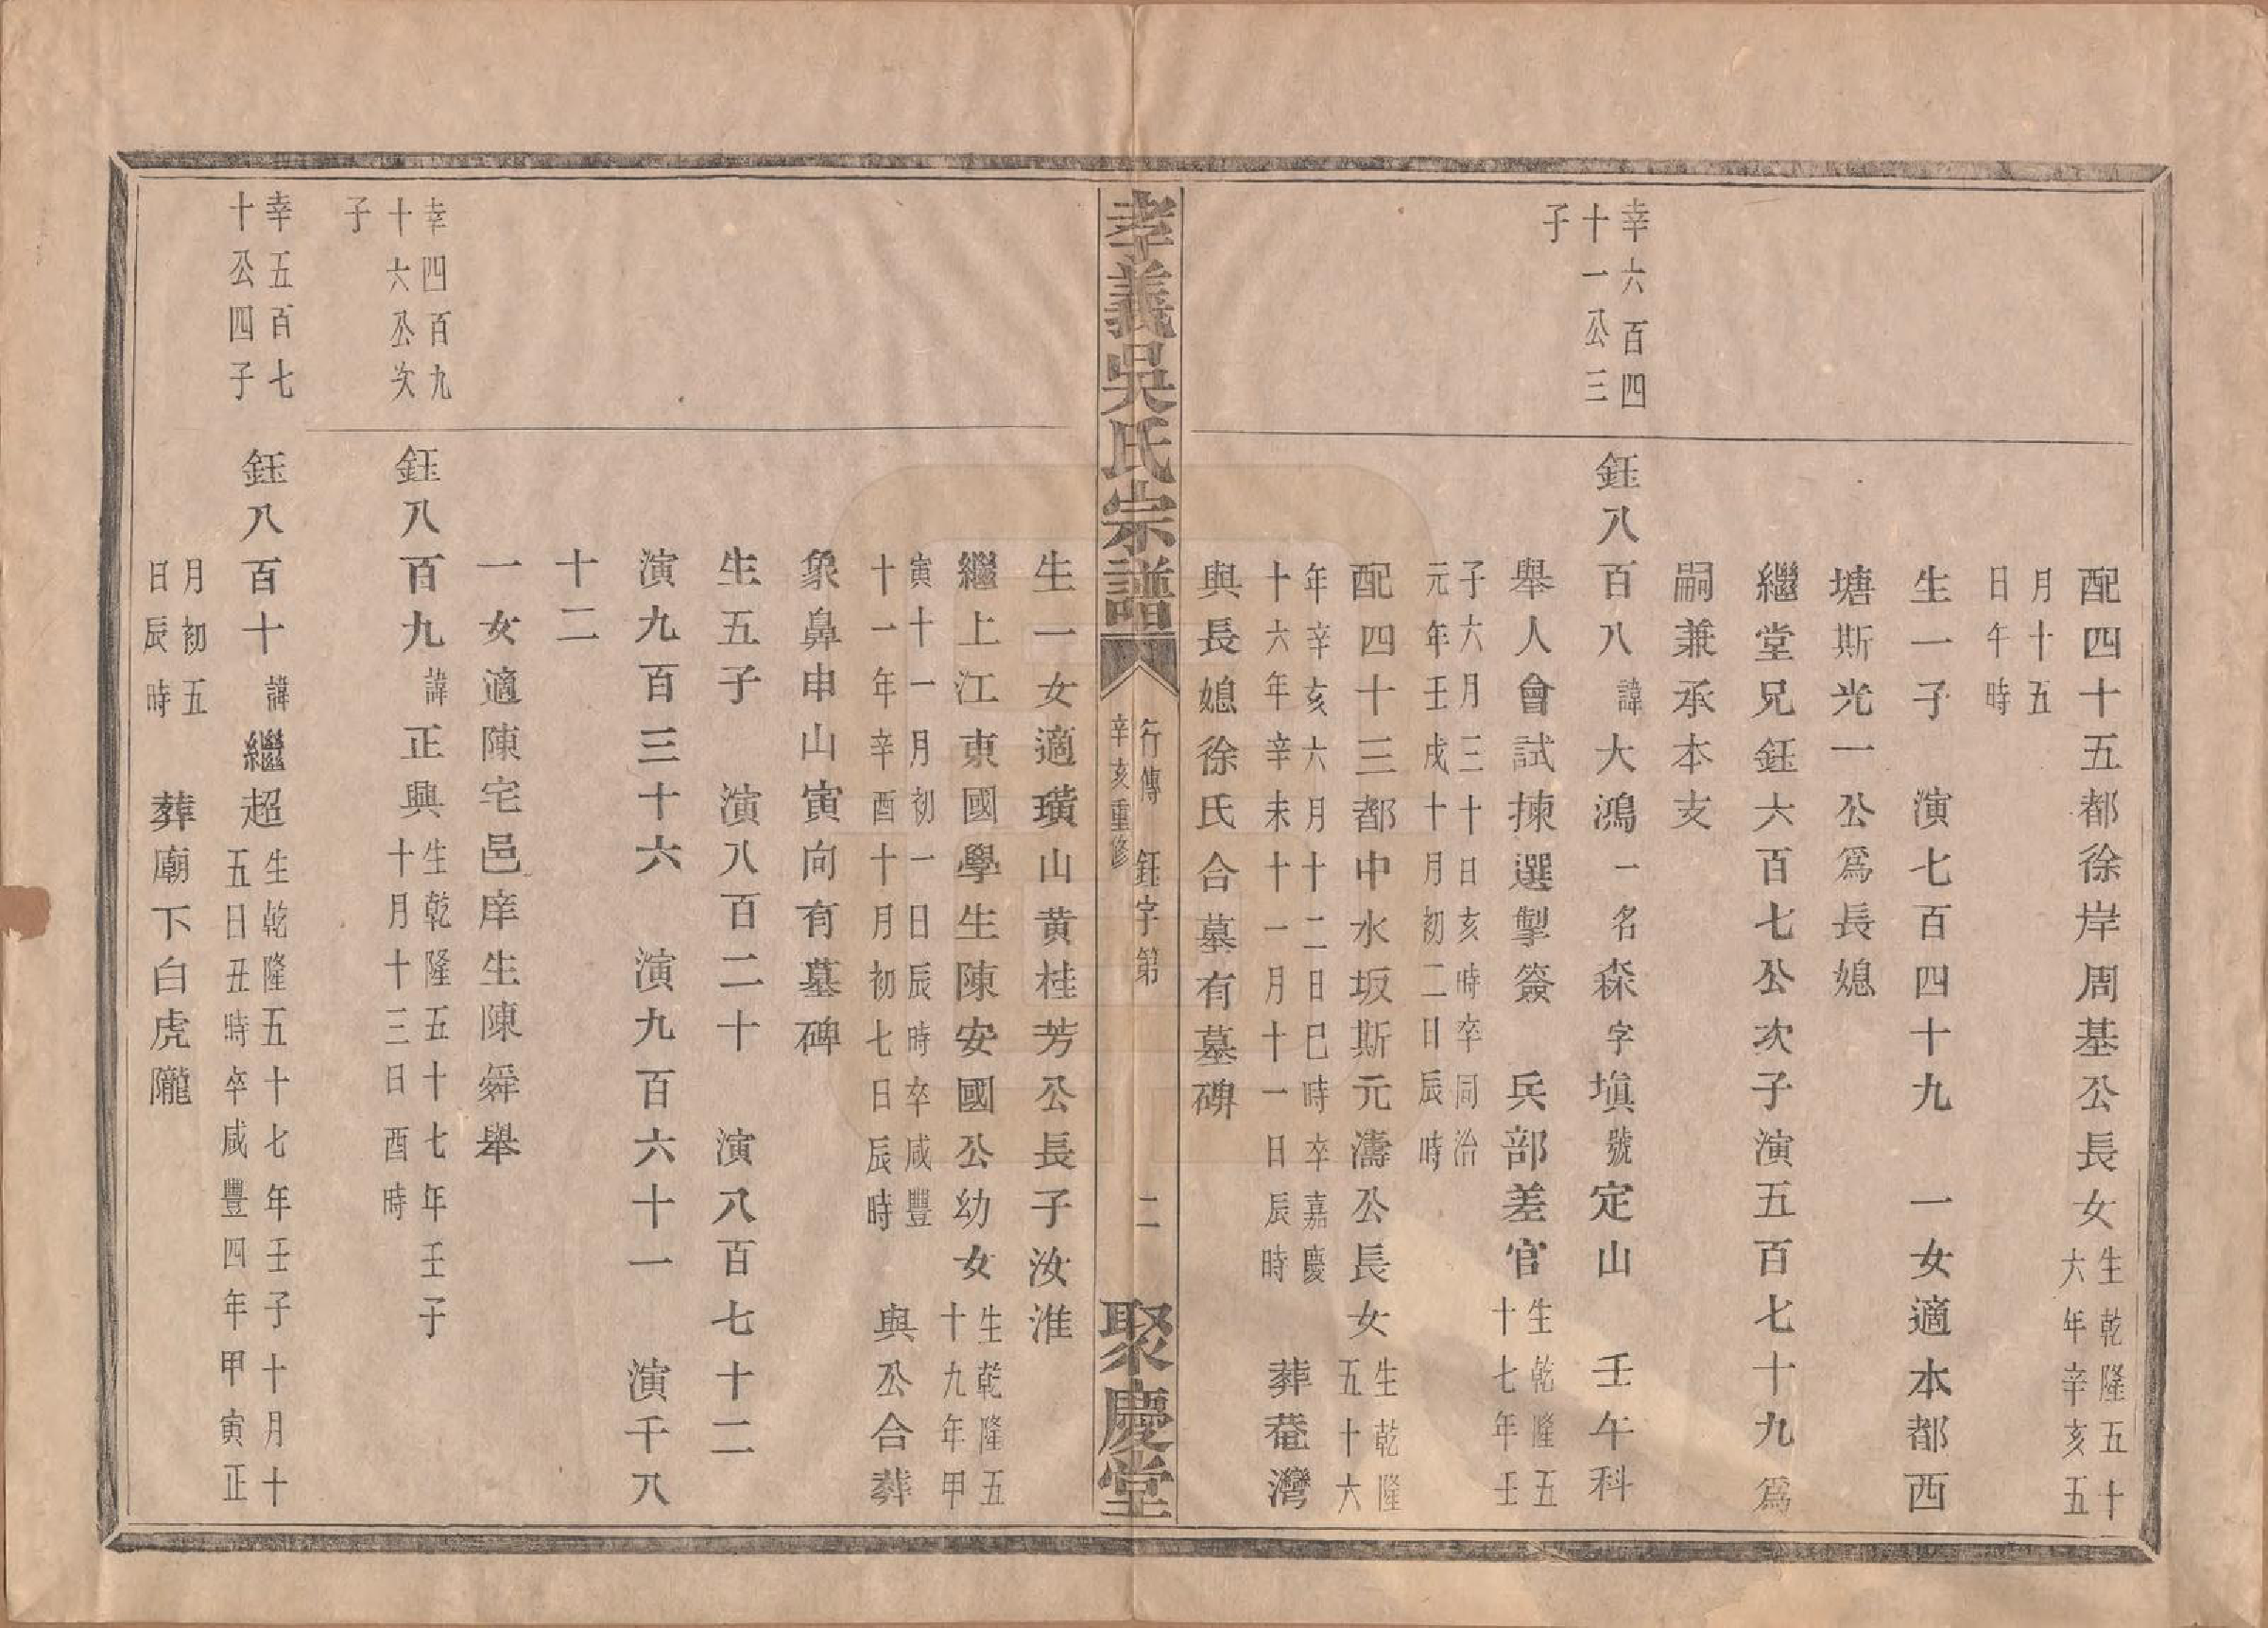 配四十五都徐岸周基公長女生乾隆五十
大年辛亥五
月十五
日午時
生一子　演七百四十九　一女適本都西
塘斯光一公爲長媳
繼堂兄鈺六百七公次子演五百七十九爲
嗣兼承本支
幸六百四
十一公三
子
鈺八百八諱大鴻一名森字塡號定山　壬午科
舉人會試揀選掣簽　兵部差官生乾隆五
十七年壬
子六月三十日亥時卒同治
元年壬戌十月初二日辰時
配四十三都中水坂斯元濤公長女生乾隆
五十六
年辛亥六月十二日巳時卒嘉慶
十六年辛未十一月十一日辰時　葬菴灣
與長媳徐氏合墓有墓碑
孝義吳氏宗譜
行傳　鈺字第　二
辛亥重修
聚慶堂
生一女適璜山黃桂芳公長子汝淮
繼上江東國學生陳安國公幼女生乾隆五
十九年甲
寅十一月初一日辰時卒咸豐
十一年辛酉十月初七日辰時　與公合葬
象鼻申山寅向有墓碑
生五子　演八百二十　演八百七十二
演九百三十六　演九百六十一　演千八
十二
一女適陳宅邑庠生陳舜舉
幸四百九
十六公次
子
鈺八百九諱正興生乾隆五十七年壬子
十月十三日酉時
幸五百七
十公四子
鈺八百十諱繼超生乾隆五十七年壬子十月十
五日丑時卒咸豐四年甲寅正
月初五
日辰時　葬廟下白虎隴